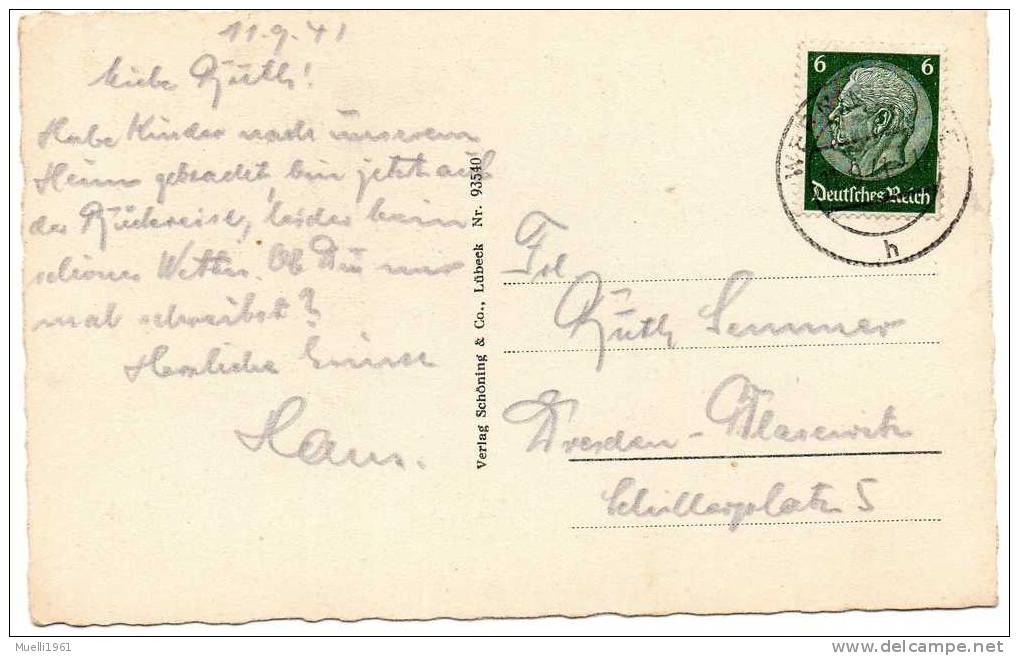 11.9.41
Liebe Ruth!
Habe Kinder nach unserem
Heim gebracht, bin jetzt auf
der Rückreise, leider kein
schönes Wetter. Ob Du mir
mal schreibst?
Herzliche Grüsse
Hans.
Verlag Schöning & Co., Lübeck Nr. 93540
6 6
Deutsches Reich
WER
h
Frl
Ruth Semmer
Dresden-Blasewitz
Schillerplatz 5
Muelli1961
www.delcampe.net